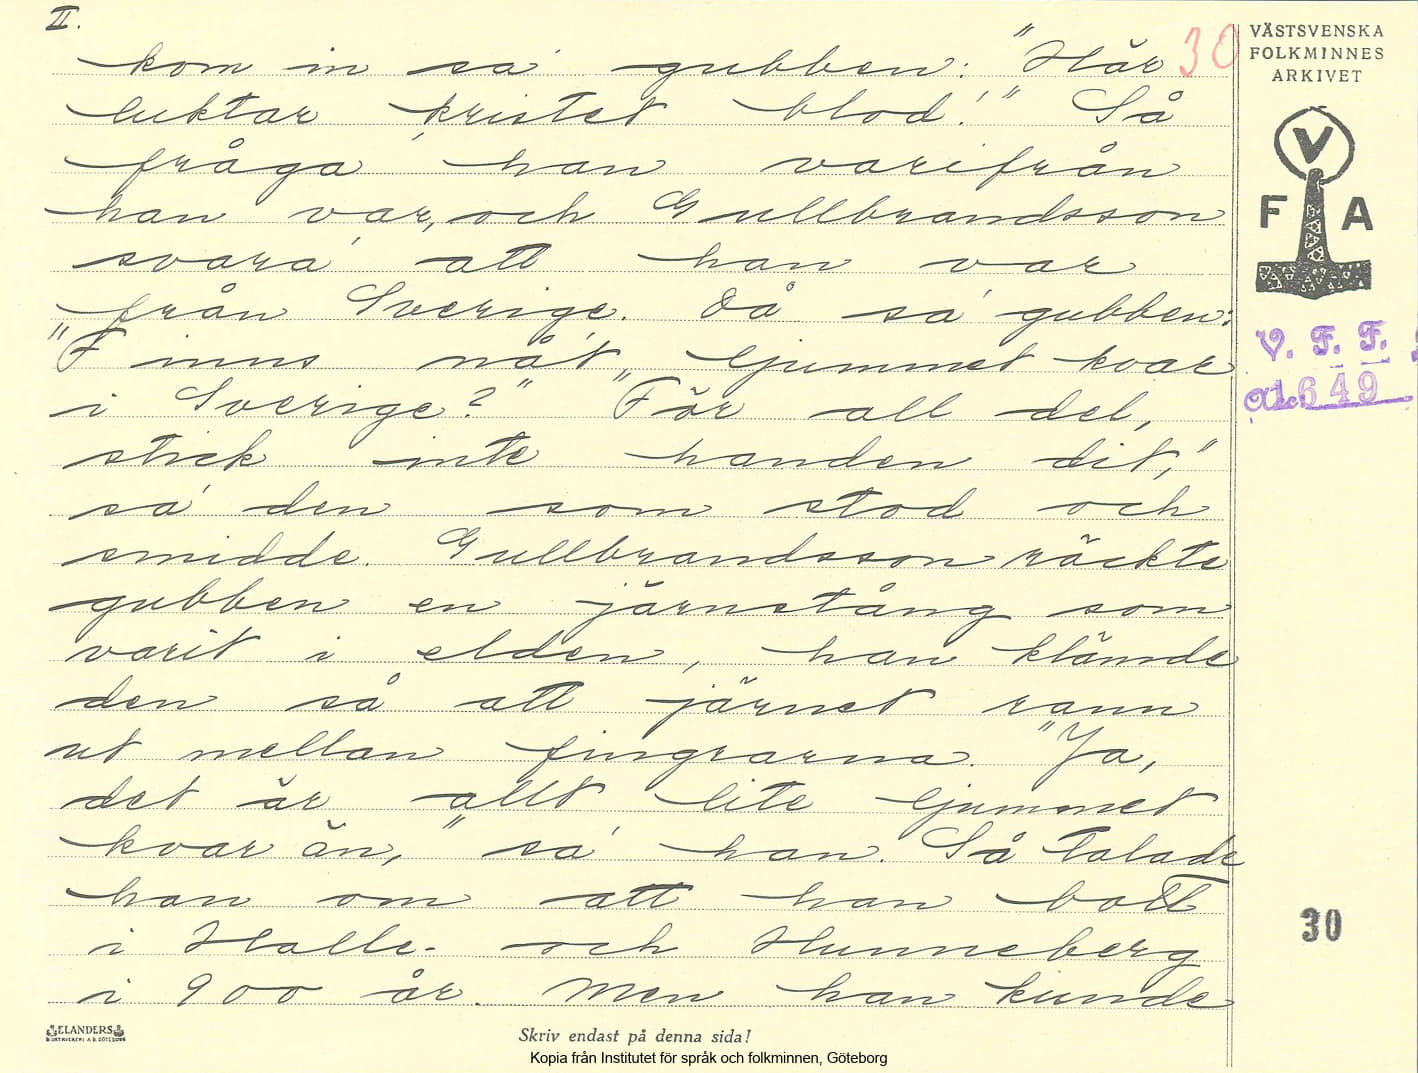 II.
kom in sa' gubben: "Här
luktar kristet blod!" Så
fråga' han varifrån
han var, och Gullbrandsson
svara' att han var
från Sverige. Då sa' gubben:
"Finns nåt ljummet kvar
i Sverige?" "För all del,
stick inte handen dit,"
sa' den som stod och
smidde. Gullbrandsson räckte
gubben en järnstång som
varit i elden, han klämde
den så att järnet rann
ut mellan fingrarna. "Ja,
det är allt lite ljummet
kvar än," sa' han. Så talade
han om att han bott
i Halle- och Hunneberg
i 900 år. Men han kunde
30
VÄSTSVENSKA
FOLKMINNES
ARKIVET
V
F A
V. F. F.
acc. 649
30
ELANDERS
BOKTRYCKERI A.B. GÖTEBORG
Skriv endast på denna sida!
Kopia från Institutet för språk och folkminnen, Göteborg